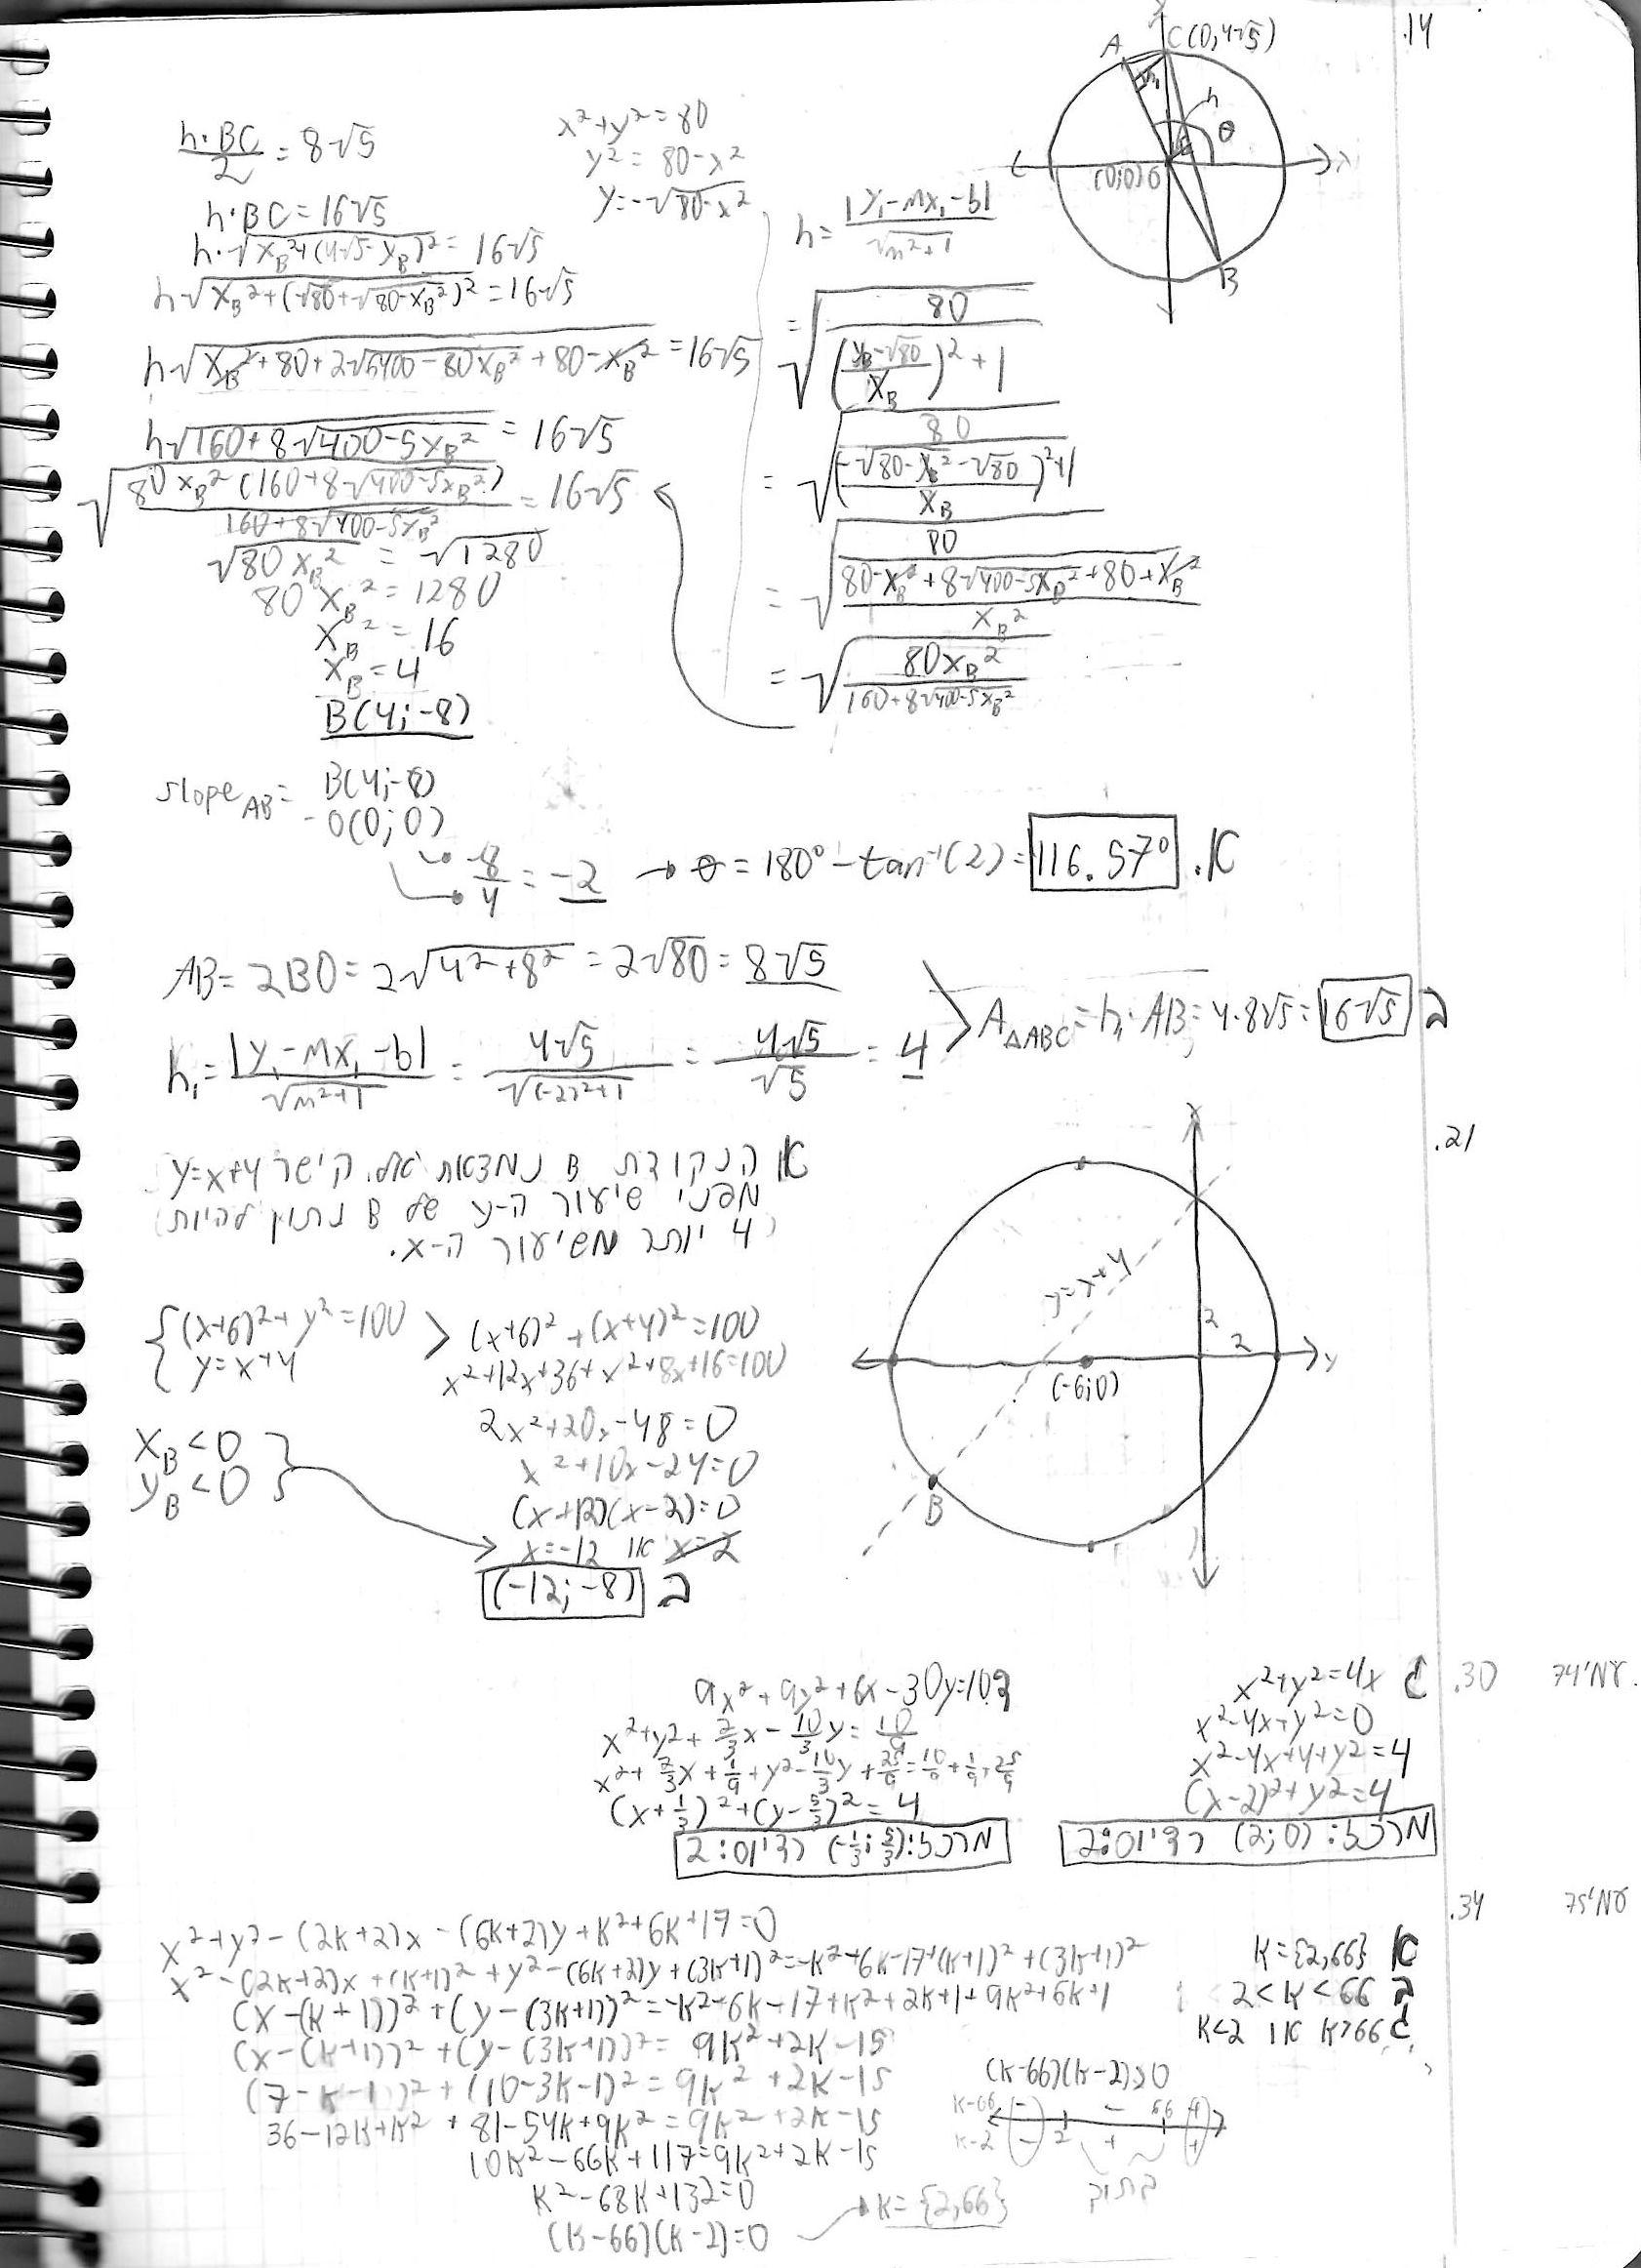 .14
C(0,4√5)
A
h₁
h
θ
x
(0;0)O
B
h·BC/2 = 8√5
h·BC = 16√5
h·√(x_B²+(4√5-y_B)²) = 16√5
h√(x_B²+(√80+√(80-x_B²))²) = 16√5
h√(x_B²+80+2√(6400-80x_B²)+80-x_B²) = 16√5
h√(160+8√(400-5x_B²)) = 16√5
√(80x_B²(160+8√(400-5x_B²))/(160+8√(400-5x_B²))) = 16√5
√(80x_B²) = √1280
80x_B² = 1280
x_B² = 16
x_B = 4
B(4;-8)
x²+y²=80
y²=80-x²
y=-√(80-x²)
h=|y₁-mx₁-b|/√(m²+1)
=√(80/(((y_B-√80)/x_B)²+1))
=√(80/(((-√(80-x_B²)-√80)/x_B)²+1))
=√(80/((80-x_B²+8√(400-5x_B²)+80+x_B²)/x_B²))
=√(80x_B²/(160+8√(400-5x_B²)))
slope_AB = B(4;-8)
-O(0;0)
-8/4 = -2 → θ = 180°-tan⁻¹(2) = 116.57° .א
AB = 2BO = 2√(4²+8²) = 2√80 = 8√5
h₁ = |y₁-mx₁-b|/√(m²+1) = 4√5/√((-2)²+1) = 4√5/√5 = 4
A△ABC = h₁·AB = 4·8√5 = 16√5 ב
.21
א הנקודת B נמצאת על קישר y=x+4
מפני שיעור ה-y של B נתון להיות
4 יותר משיעור ה-x.
y=x+4
2
2
(-6;0)
B
{(x+6)²+y²=100
y=x+4
(x+6)²+(x+4)²=100
x²+12x+36+x²+8x+16=100
2x²+20x-48=0
x²+10x-24=0
(x+12)(x-2)=0
x_B<0
y_B<0
x=-12 או x=2
(-12;-8) ב
עמ'74
.30
ג x²+y²=4x
x²-4x+y²=0
x²-4x+4+y²=4
(x-2)²+y²=4
מרכז: (2;0) רדיוס:2
9x²+9y²+6x-30y=10
x²+y²+2/3x-10/3y=10/9
x²+2/3x+1/9+y²-10/3y+25/9=10/9+1/9+25/9
(x+1/3)²+(y-5/3)²=4
מרכז:(-1/3;5/3) רדיוס:2
עמ'75
.34
x²+y²-(2k+2)x-(6k+2)y+k²+6k+17=0
x²-(2k+2)x+(k+1)²+y²-(6k+2)y+(3k+1)²=-k²-6k-17+(k+1)²+(3k+1)²
(x-(k+1))²+(y-(3k+1))²=-k²-6k-17+k²+2k+1+9k²+6k+1
(x-(k+1))²+(y-(3k+1))²=9k²+2k-15
(7-k-1)²+(10-3k-1)²=9k²+2k-15
36-12k+k²+81-54k+9k²=9k²+2k-15
10k²-66k+117=9k²+2k-15
k²-68k+132=0
(k-66)(k-2)=0
→k={2,66}
א k={2,66}
ב 2<k<66
ג k<2 או k>66
(k-66)(k-2)>0
k-66 - 2 - 66 +
k-2 - + +
בתוך